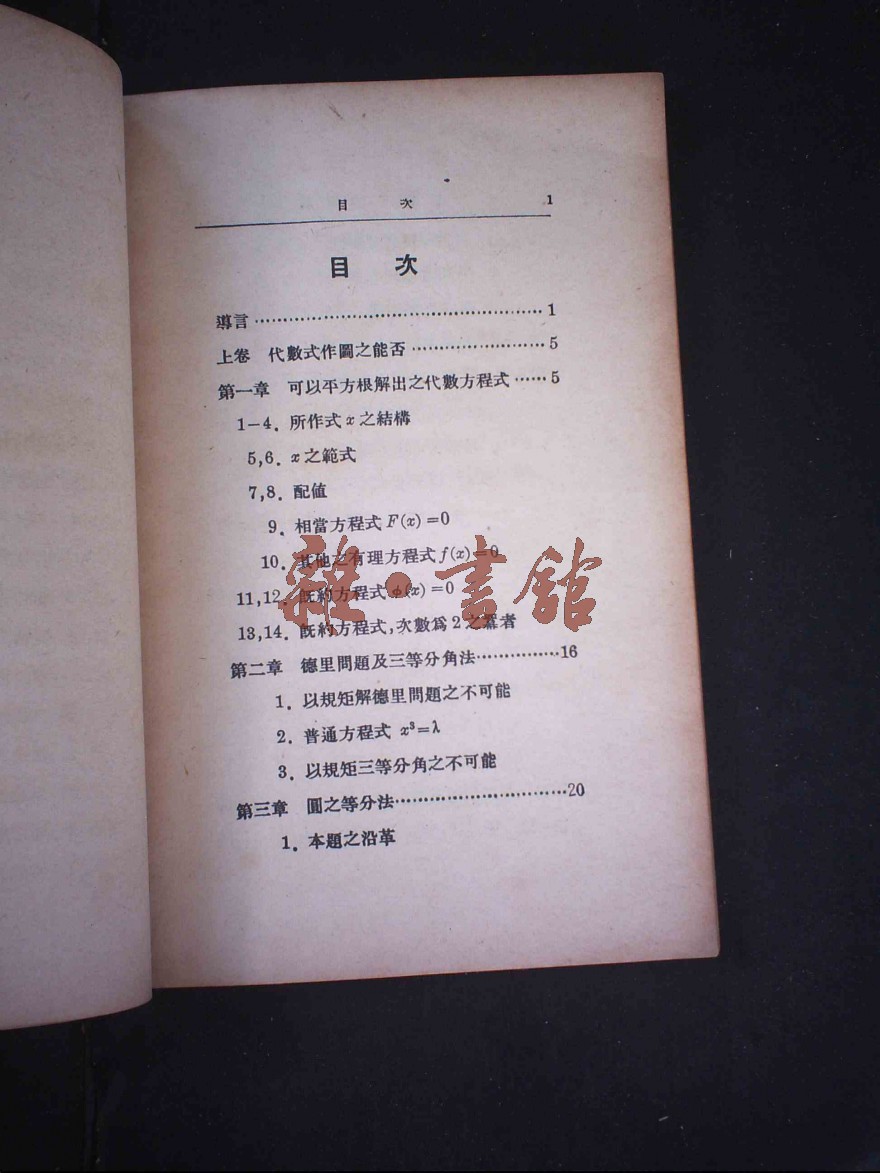 目 次 1
目 次
導言 1
上卷 代數式作圖之能否 5
第一章 可以平方根解出之代數方程式 5
1-4. 所作式 x 之結構
5,6. x 之範式
7,8. 配値
9. 相當方程式 F(x)=0
10. 其他之有理方程式 f(x)=0
11,12. 旣約方程式 φ(x)=0
13,14. 旣約方程式,次數爲 2 之冪者
第二章 德里問題及三等分角法 16
1. 以規矩解德里問題之不可能
2. 普通方程式 x³=λ
3. 以規矩三等分角之不可能
第三章 圓之等分法 20
1. 本題之沿革
雜·書館